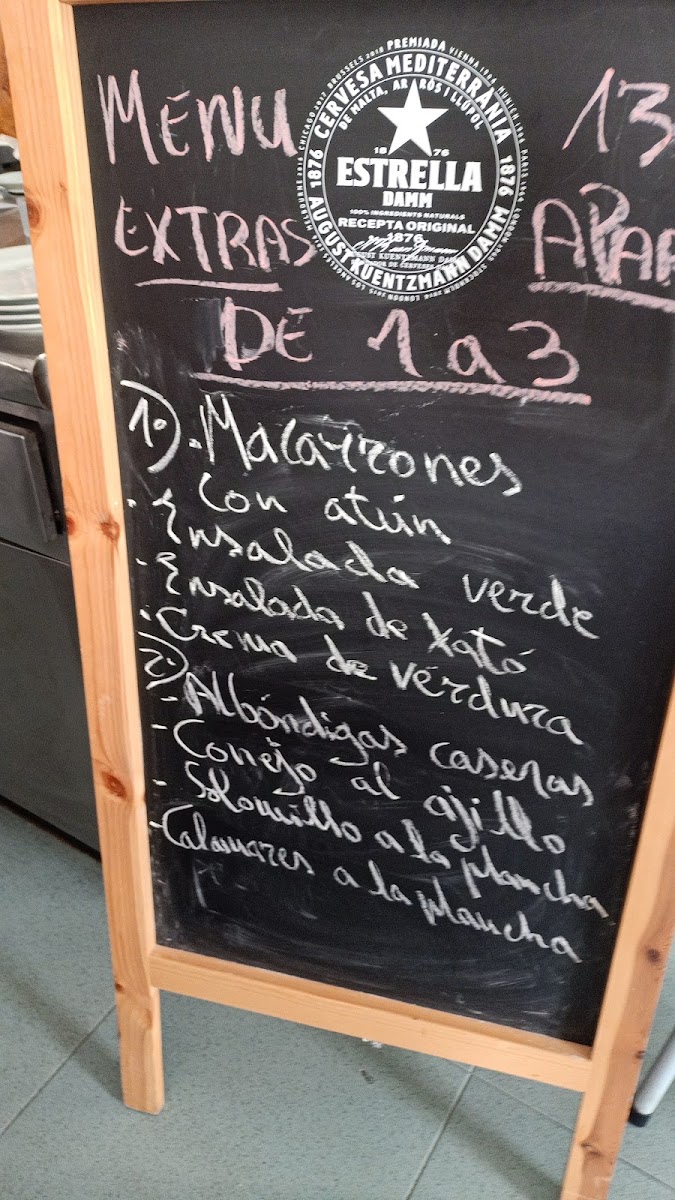 MENU 13
EXTRAS APAR
DE 1 a 3
PREMIADA
CERVESA MEDITERRÀNIA
DE MALTA, ARRÒS I LLÚPOL
1876 1876
18 76
ESTRELLA
DAMM
100% INGREDIENTS NATURALS
RECEPTA ORIGINAL
1876
AUGUST KUENTZMANN DAMM
1º) - Macarrones
con atún
- Ensalada verde
- Ensalada de xató
- Crema de verdura
2º)
- Albóndigas caseras
- Conejo al ajillo
- Solomillo a la plancha
- Calamares a la plancha